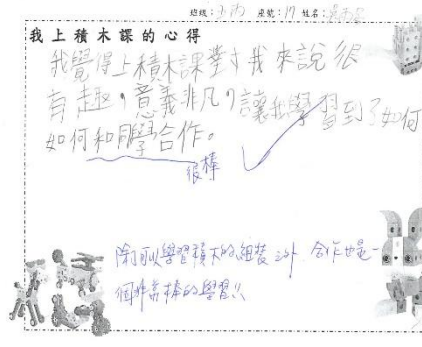 班級:五丙 座號:17 姓名:
我上積木課的心得
我覺得上積木課對我來說很
有趣,意義非凡,讓我學習到了如何
如何和同學合作。
很棒
除可以學習積木的組裝之外 合作也是一
個非常棒的學習!!